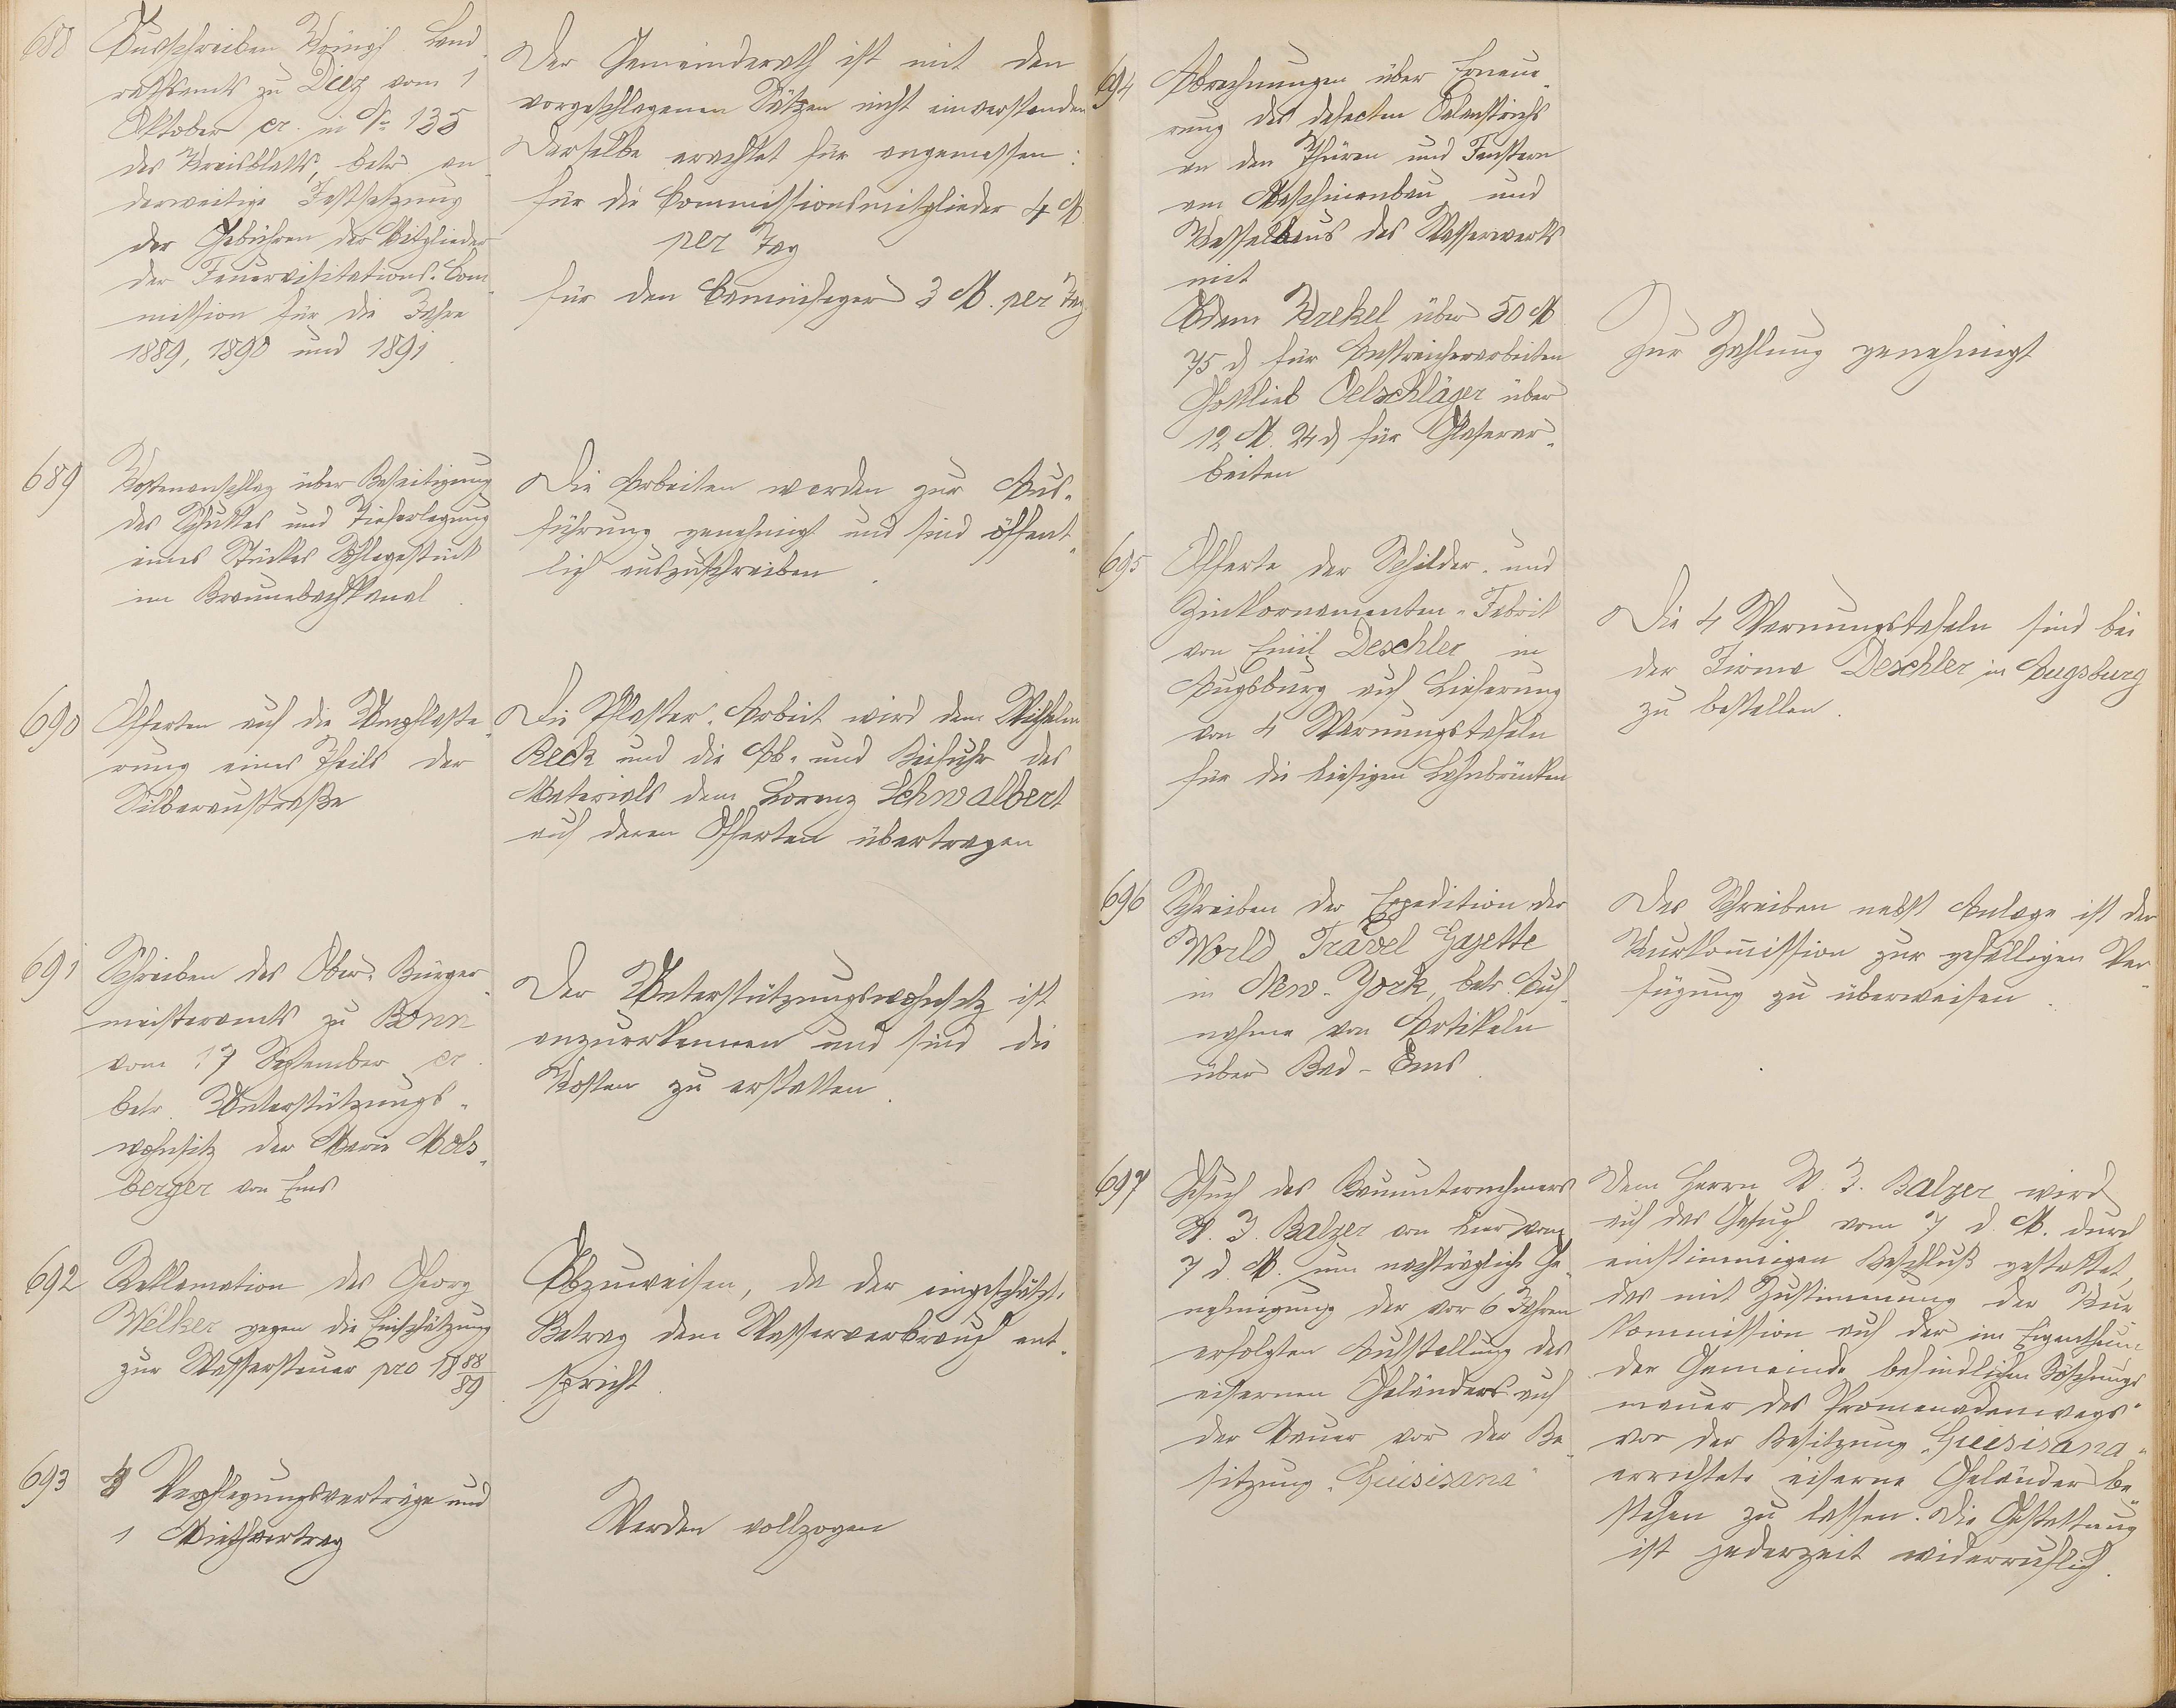 688
Ausschreiben Königl. Land
rathsamts zu Diez vom 1
Oktober cr. in No 135
des Kreisblatts, betr. an
derweitige Festsetzung
der Gebühren der Mitglieder
der Feuervisitations-Com
mission für die Jahre
1889, 1890 und 1891.
Der Gemeinderath ist mit den
vorgeschlagenen Sätzen nicht einverstanden
Derselbe erachtet für angemessen:
für die Commissionsmitglieder 4 M.
per Tag
für den Kaminfeger 3 M. per Tag
689
Kostenanschlag über Beseitigung
des Schuttes und Tieferlegung
eines Stückes
im Braunebachkanal.
Die Arbeiten werden zur Aus-
führung genehmigt und sind öffent-
lich auszuschreiben.
690
Offerten auf die Umpflaste-
rung eines Theils der
Silberaustraße
Die Pflaster-Arbeit wird dem Wilhelm
Beck und die Ab- und Beifuhr des
Materials dem Lorenz Schwalbert
auf deren Offerten übertragen
691
Schreiben des Ober-Bürger-
meisteramts zu Bonn
vom 17 September cr.
betr. Unterstützungs-
wohnsitz der Marie Mols-
berger von Ems
Der Unterstützungswohnsitz ist
anzuerkennen und sind die
Kosten zu erstatten.
692
Reklamation des Georg
Welker gegen die Einschätzung
zur Wassersteuer pro 1888/89
Abzuweisen, da der eingeschätzte
Betrag dem Wasserverbrauch ent-
spricht.
693
Verpflegungsverträge und
1 Miethvertrag
Werden vollzogen
694
Abrechnungen über Erneue-
rung des defecten Oelanstrichs
an den Thüren und Fenstern
am Maschinenbau und
Kesselhaus des Wasserwerks
mit
Adam Krekel über 50 M.
75 d für Anstreicherarbeiten
Gottlieb Oelschläger über
12 M. 24 d für Glaserar-
beiten
Zur Zahlung genehmigt
695
Offerte der Schilder- und
Zinkornamenten-Fabrik
von Emil Deschler in
Augsburg auf Lieferung
von 4 Warnungstafeln
für die hiesigen Lahnbrücken
Die 4 Warnungstafeln sind bei
der Firma Deschler in Augsburg
zu bestellen.
696
Schreiben der Expedition der
World Travel Gazette
in New-York, betr. Auf-
nahme von Artikeln
über Bad-Ems.
Das Schreiben nebst Anlage ist der
Kurkommission zur gefälligen Ver-
fügung zu überweisen.
697
Gesuch des Bauunternehmers
W. J. Balzer von hier vom
7 d. M. um nachträgliche Ge-
nehmigung der vor 6 Jahren
erfolgten Aufstellung des
eisernen Geländers auf
der Mauer vor der Be-
sitzung "Guisisana"
Dem Herrn W. J. Balzer wird
auf das Gesuch vom 7 d. M. durch
einstimmigen Beschluß gestattet,
das mit Zustimmung der Kur
Kommission auf der im Eigenthum
der Gemeinde befindlichen Böschungs-
mauer des Promenadenwegs
vor der Besitzung "Guesisana"
errichtete eiserne Geländer be-
stehen zu lassen. Die Gestattung
ist jederzeit widerruflich.